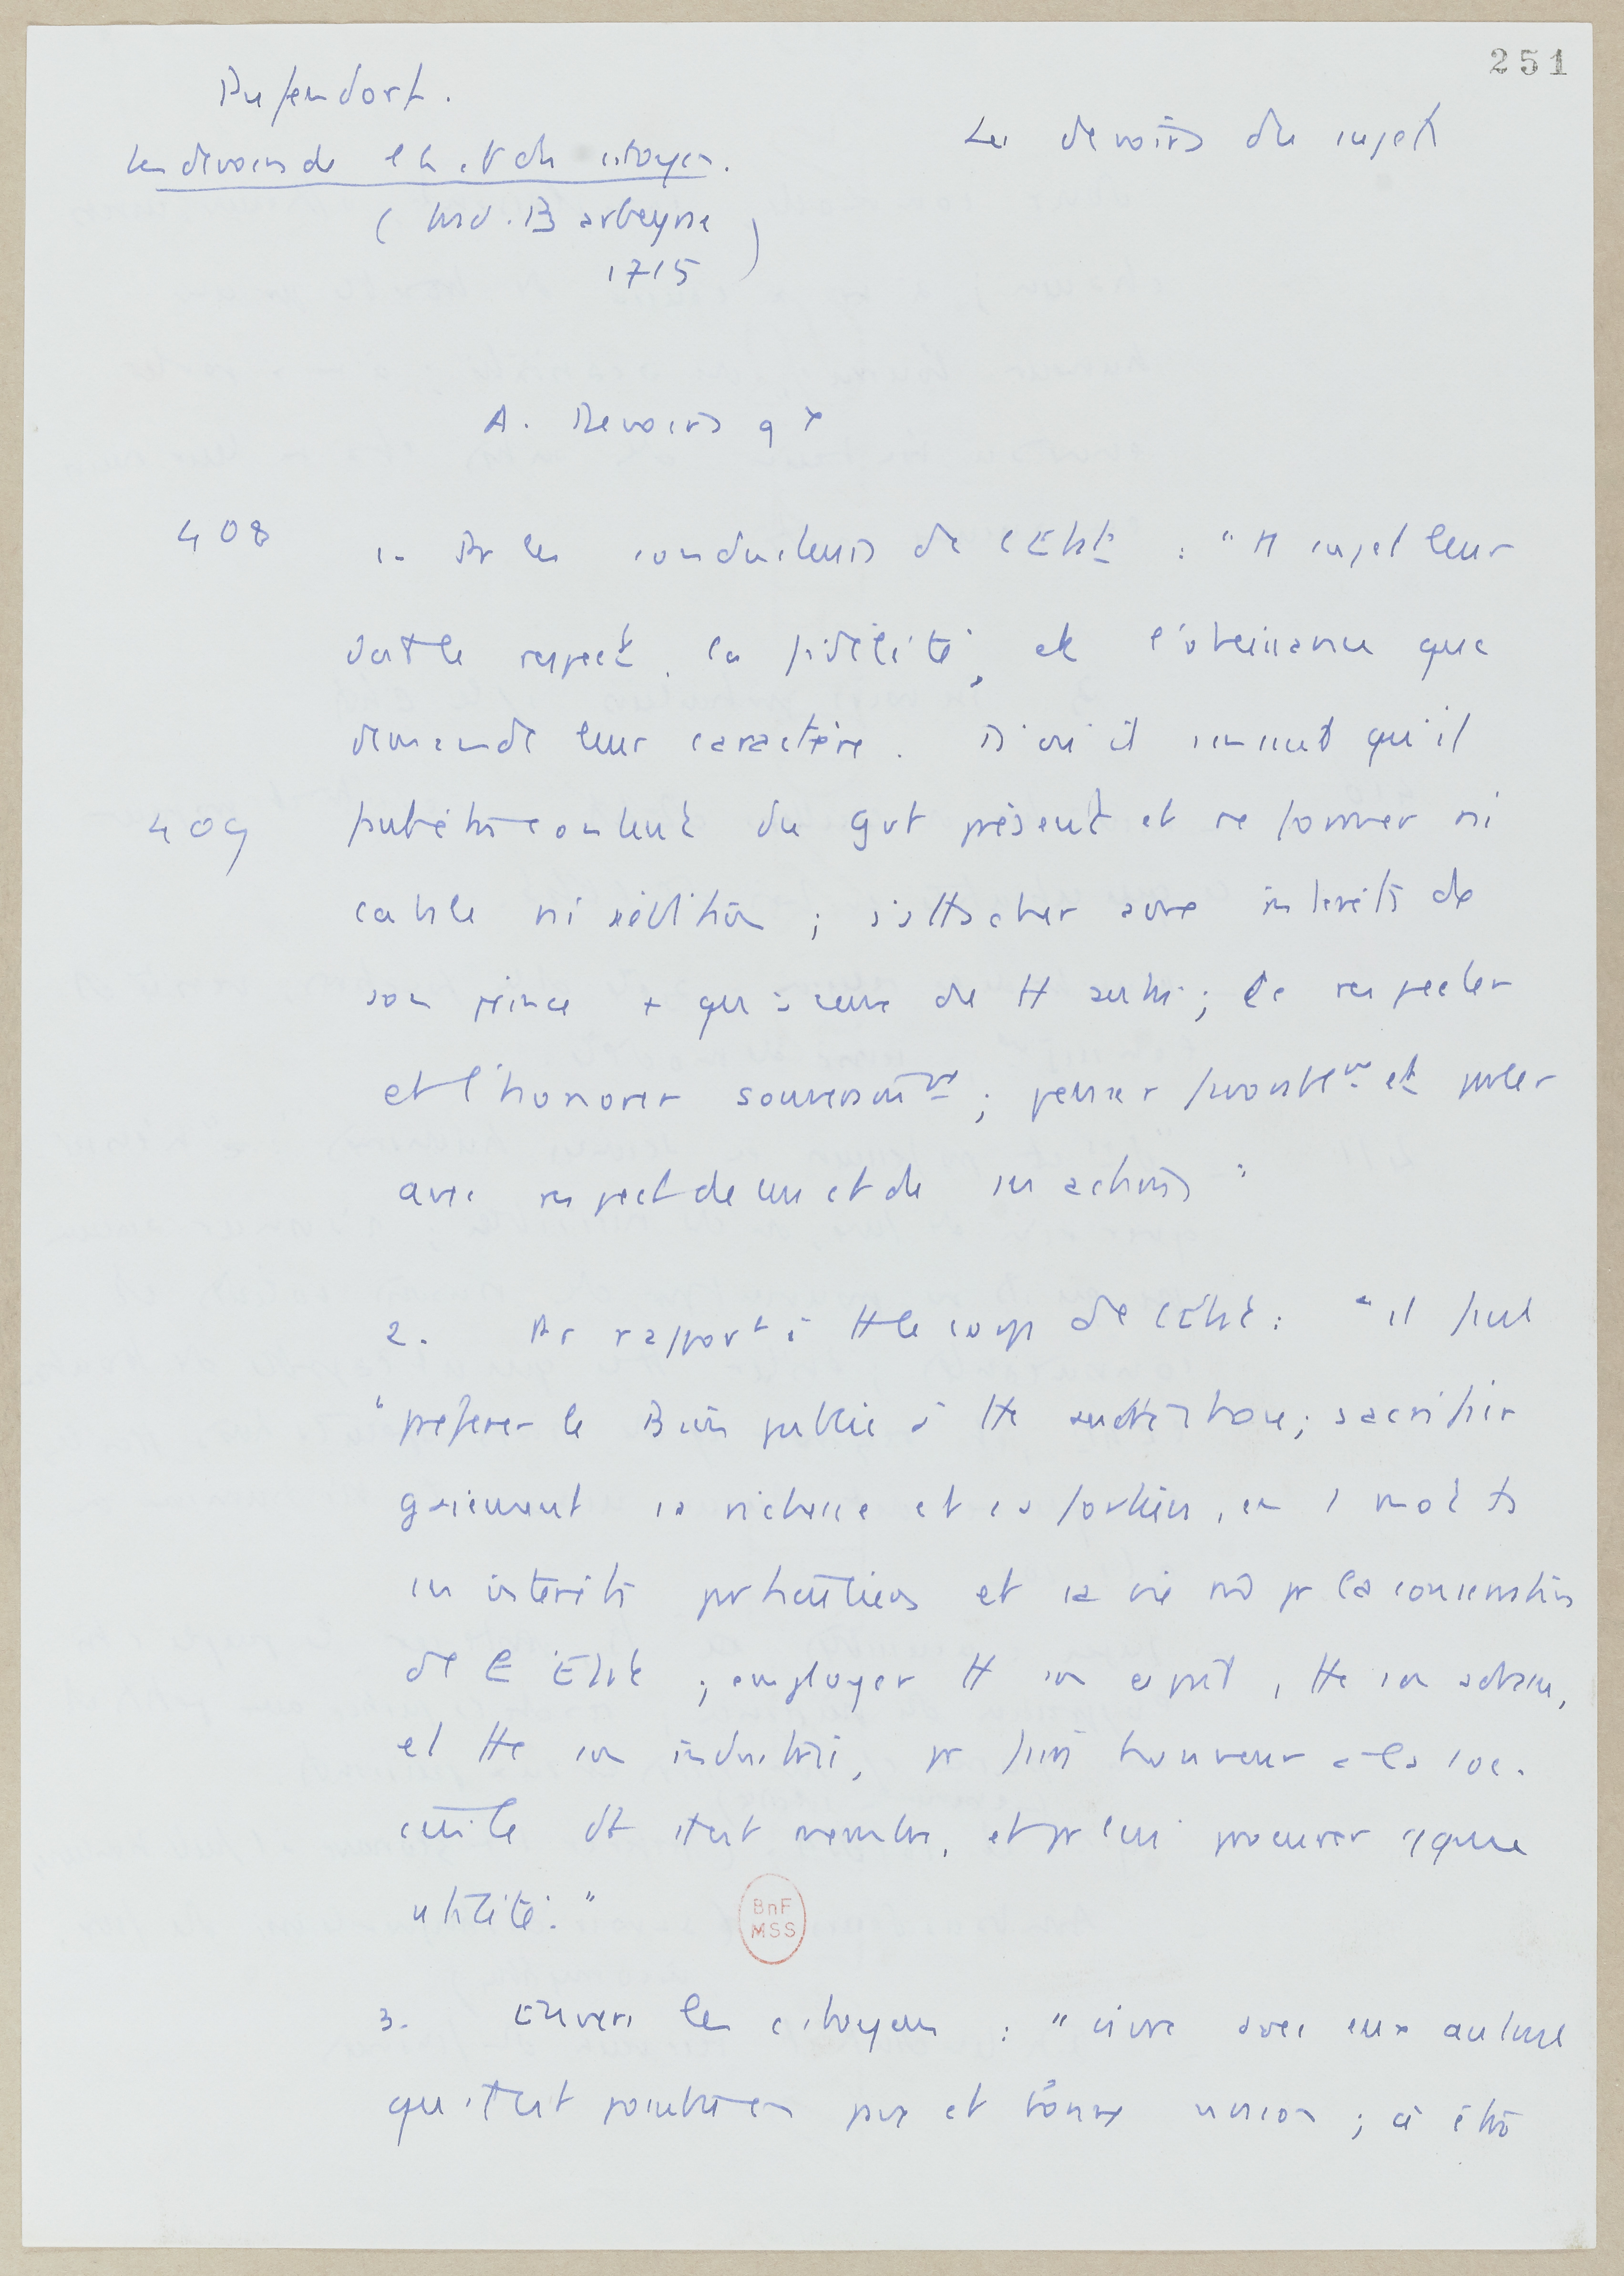 251
Pufendorf.
Les devoirs du sujet
Les devoirs de l'h. et du citoyen.
( trad. Barbeyrac
1715 )
A. Devoirs gx
408 1- Pr les conducteurs de l'Etat : "Tt sujet leur
doit le respect, la fidélité, et l'obéissance que
demande leur caractère. D'où il s'ensuit qu'il
409 faut être content du gvt présent et ne former ni
cabale ni sédition ; s'attacher aux intérêts de
son prince + qu'à ceux de tt autre ; le respecter
et l'honorer souverainmt ; penser favorablemt et parler
avec respect de lui et de ses actions"
2. Par rapport à tt le corps de l'Etat : "il faut
"préférer le Bien public à tte autre chose ; sacrifier
gaiement sa richesse et sa fortune, en 1 mot ts
ses intérêts particuliers et sa vie mê pr la conservation
de l'Etat ; employer tt son esprit, tte son adresse,
et tte son industrie, pr faire honneur à la soc.
civile dt il est membre, et pr lui procurer qque
utilité."
BnF
MSS
3. Envers les citoyens : "vivre avec eux autant
qu'il est possible en paix et bonne union ; à être